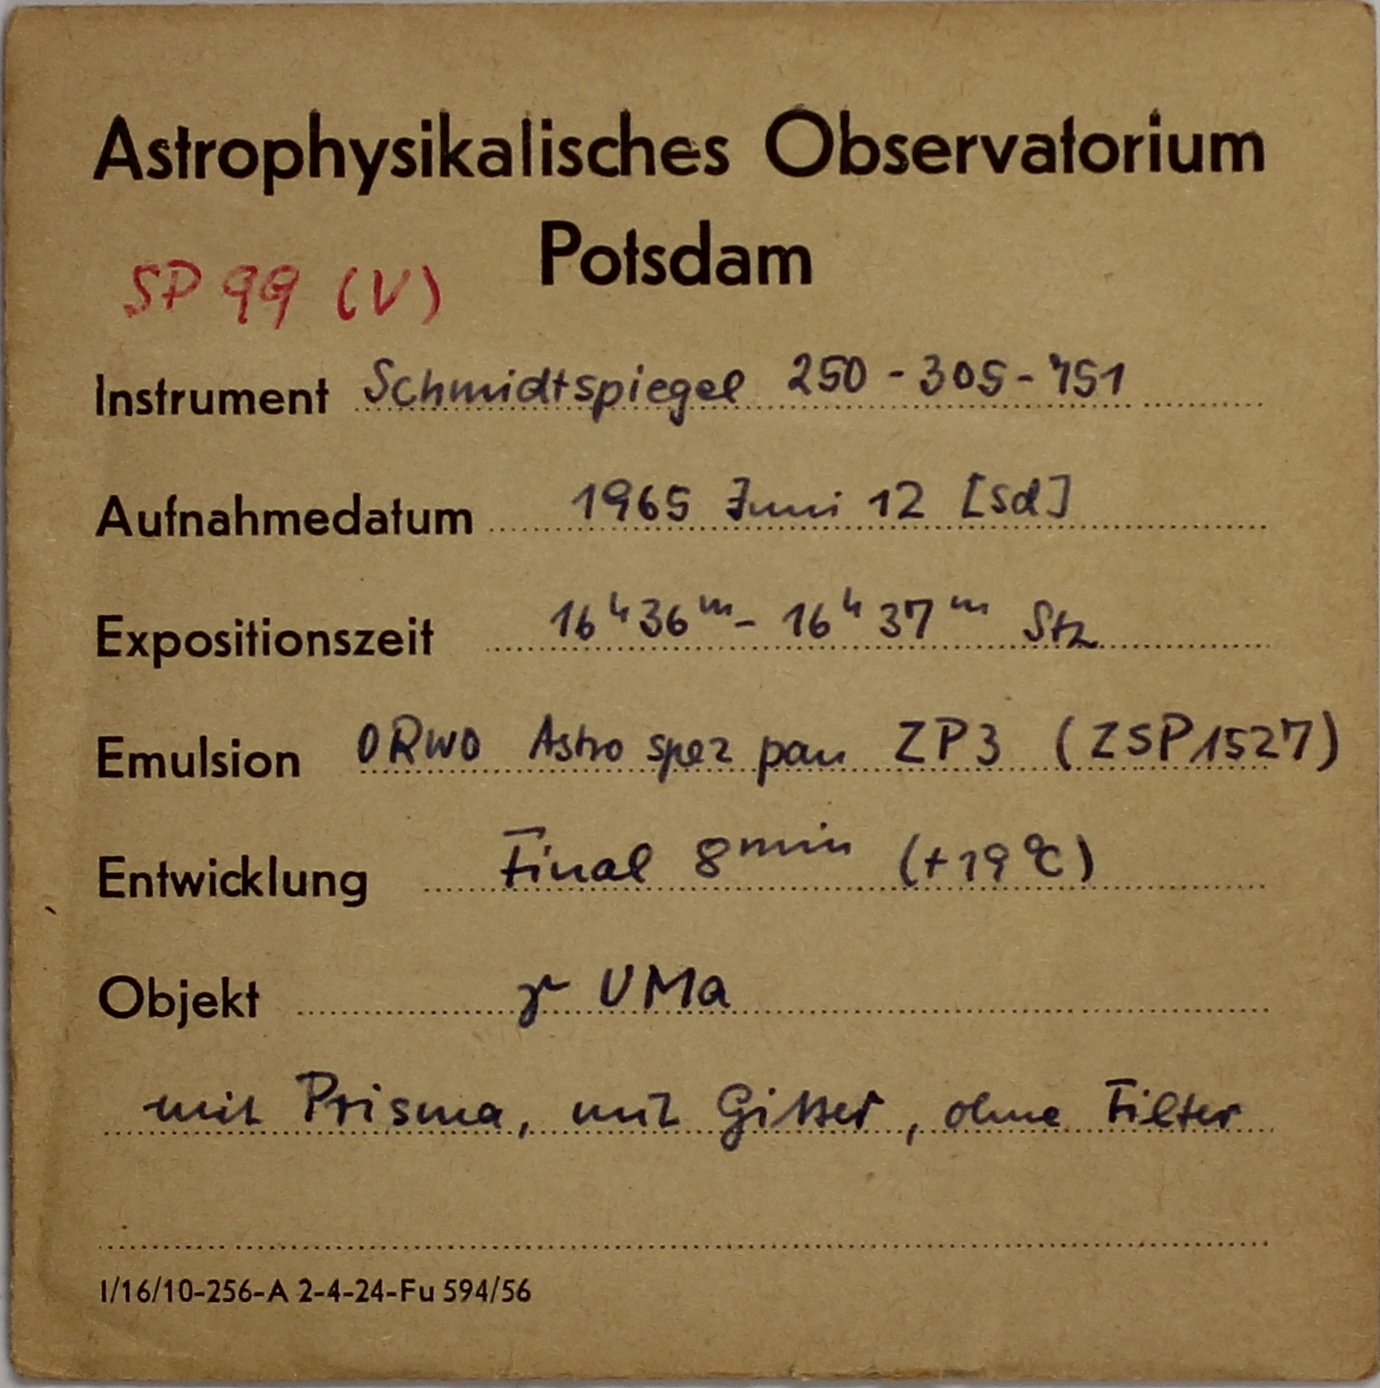 Astrophysikalisches Observatorium
Potsdam
SP 99 (V)
Instrument Schmidtspiegel 250 - 305 - 751
Aufnahmedatum 1965 Juni 12 [Sd]
Expositionszeit 16ʰ36ᵐ - 16ʰ37ᵐ Stz
Emulsion ORWO Astro spez pan ZP3 (ZSP1527)
Entwicklung Final 8ᵐⁱⁿ (+19°C)
Objekt γ UMa
mit Prisma, mit Gitter, ohne Filter
I/16/10-256-A 2-4-24-Fu 594/56